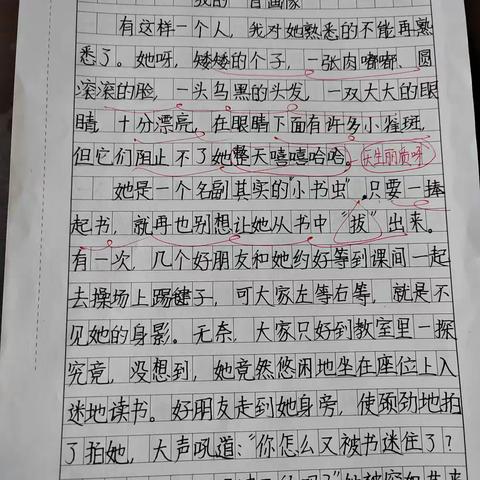 我的"自画像"
有这样一个人，我对她熟悉的不能再熟
悉了。她呀，矮矮的个子，一张肉嘟嘟、圆
滚滚的脸，一头乌黑的头发，一双大大的眼
睛，十分漂亮，在眼睛下面有许多小雀斑，
但它们阻止不了她整天嘻嘻哈哈。天生丽质呀
她是一个名副其实的“小书虫”，只要一捧
起书，就再也别想让她从书中“拔”出来。
有一次，几个好朋友和她约好等到课间一起
去操场上踢毽子，可大家左等右等，就是不
见她的身影。无奈，大家只好到教室里一探
究竟，没想到，她竟然悠闲地坐在座位上入
迷地读书。好朋友走到她身旁，使颈劲地拍
了拍她，大声吼道：“你怎么又被书迷住了？